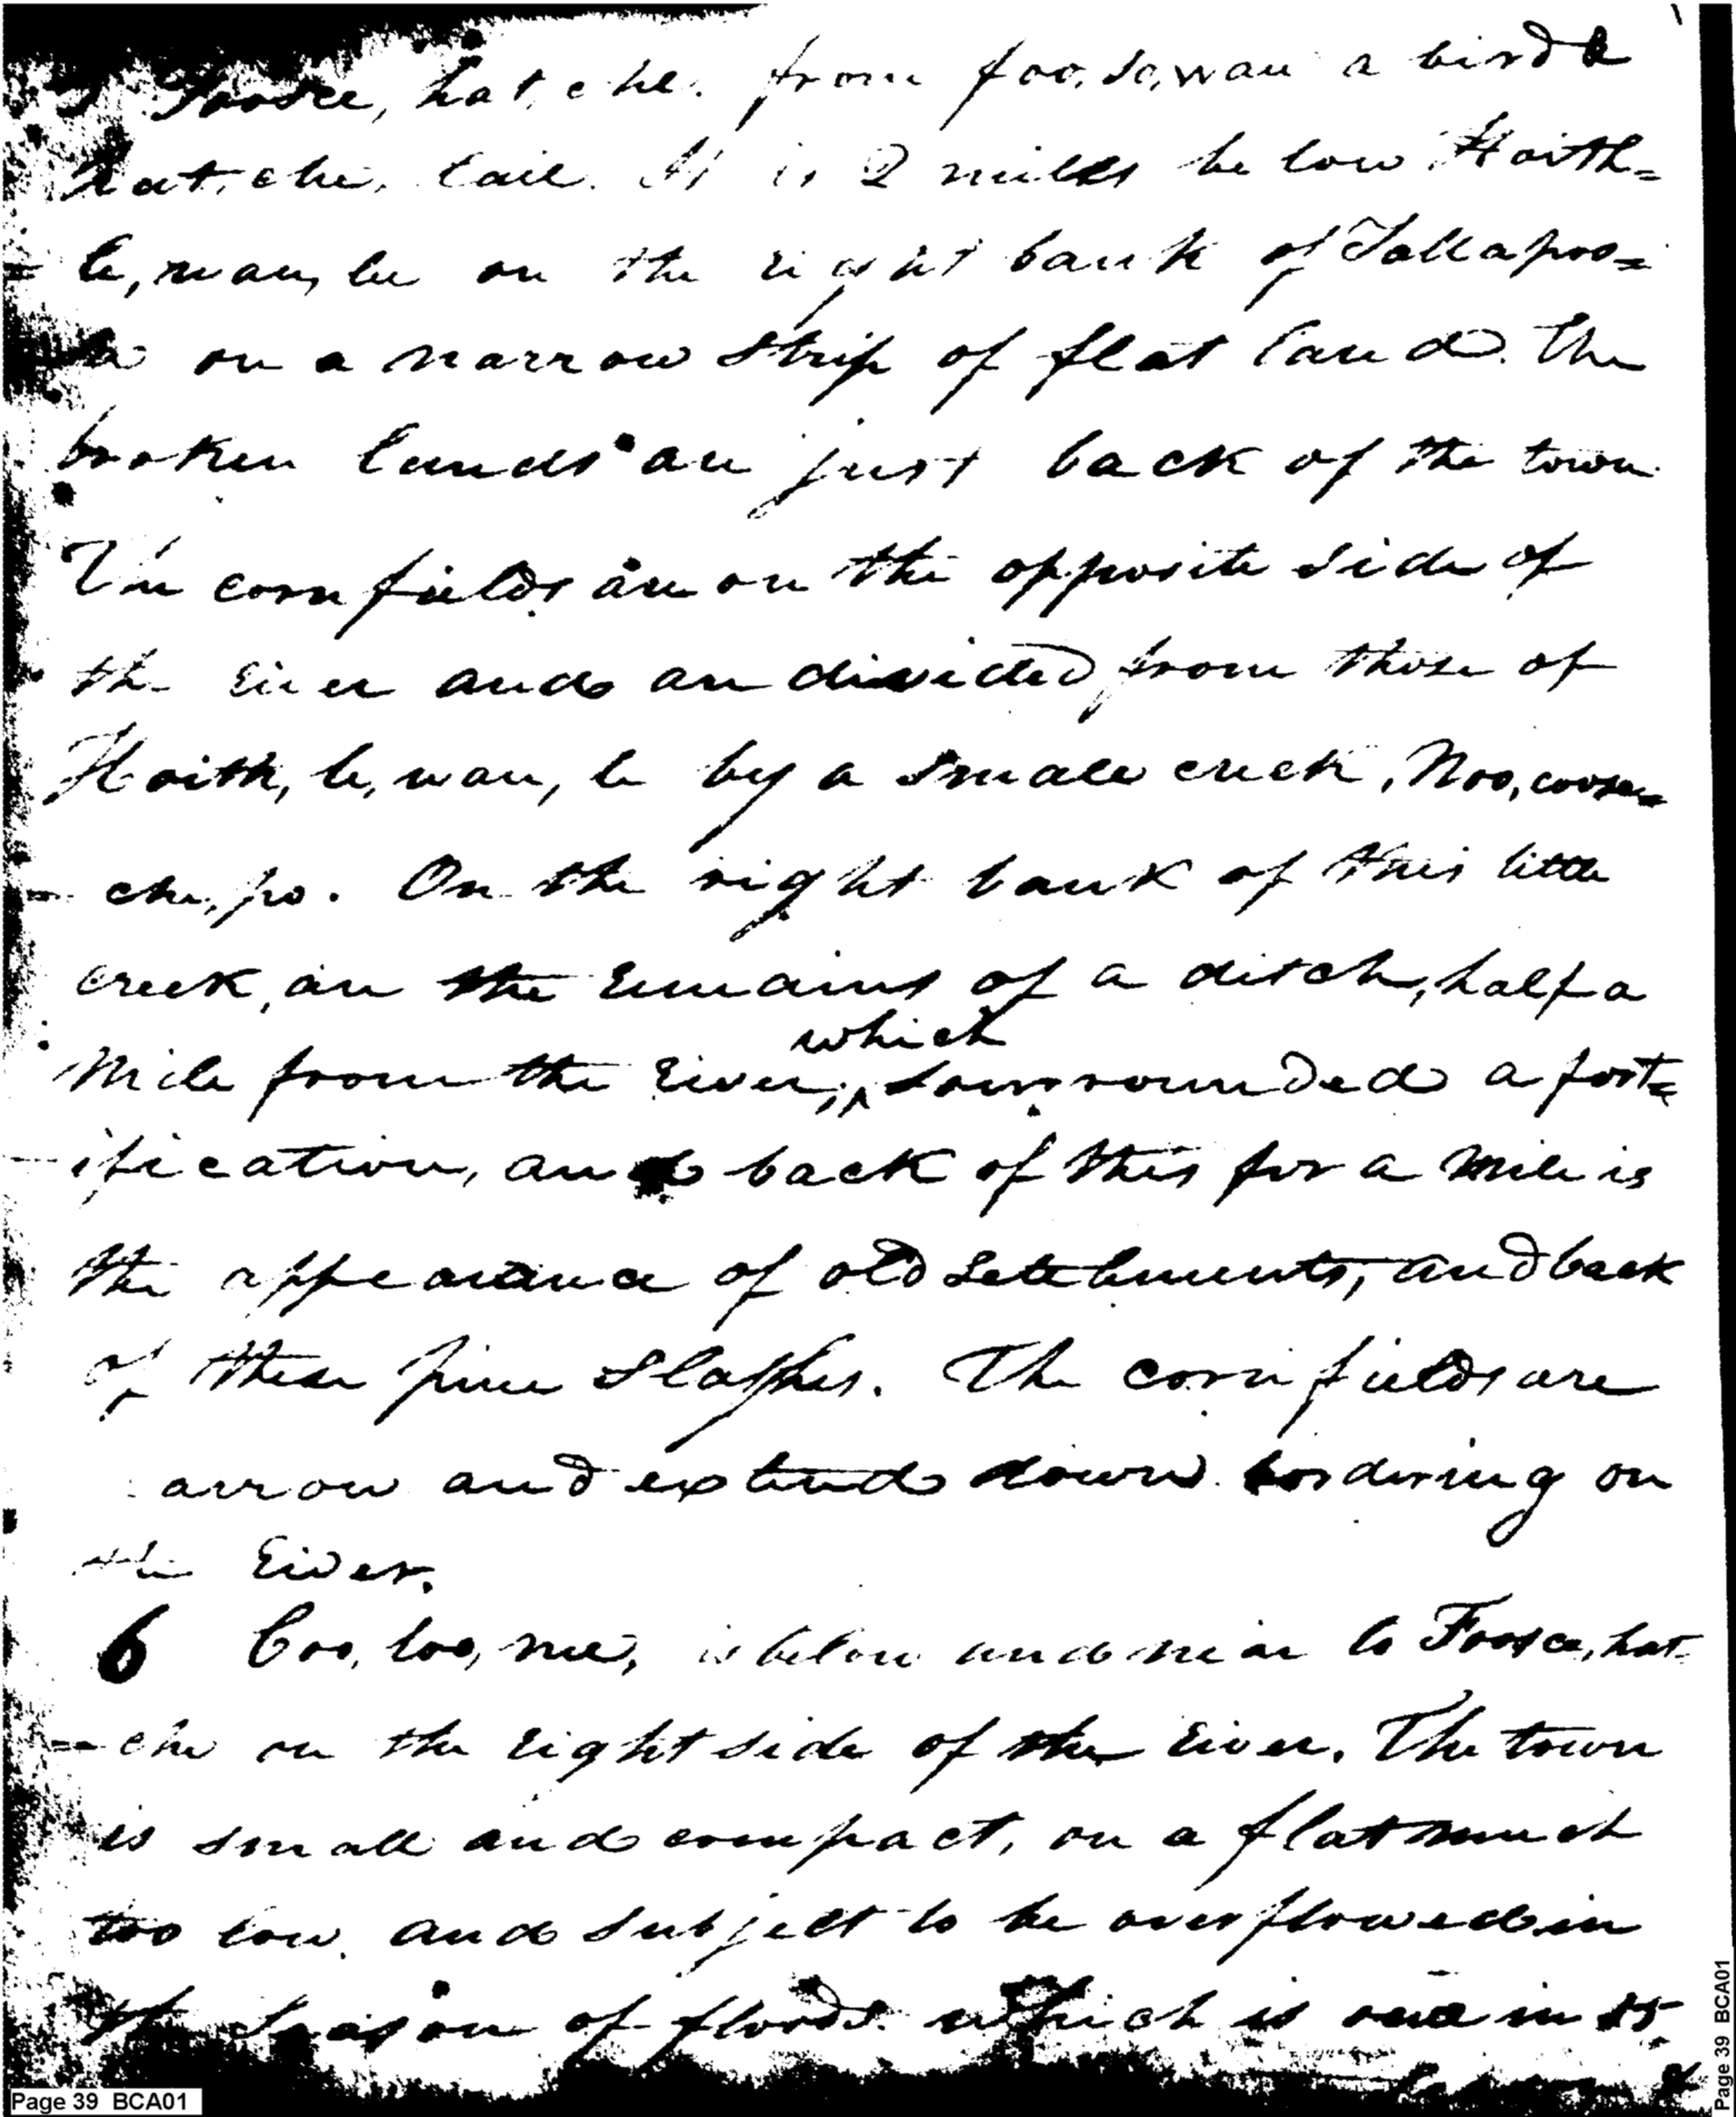 Foosce, hat, che. from foo, so, wau a bird &
hat, che, tail. It is 2 miles be low Hoith=
le, wau, le on the right bank of Tallapoo=
on a narrow strip of flat land. The
broken lands are just back of the town
The corn fields are on the opposite side of
the river and are divided from those of
Hoith, le, wau, le by a small creek, Noo, coose=
che, po. On the right bank of this little
creek, are the remains of a ditch, half a
which
Mile from the river, ^ sourrounded a fort=
ification, and back of this for a mile is
the appearance of old setelments, and back
of these pine slashes. The corn fields are
arrow and extend down bordering on
the River.
6 Coo, loo, me, is below and near to Foosce, hat=
che on the right side of the river. The town
is small and compact, on a flat much
too low and subject to be overflowed in
the season of floods which is once in 15
Page 39 BCA01
Page 39 BCA01